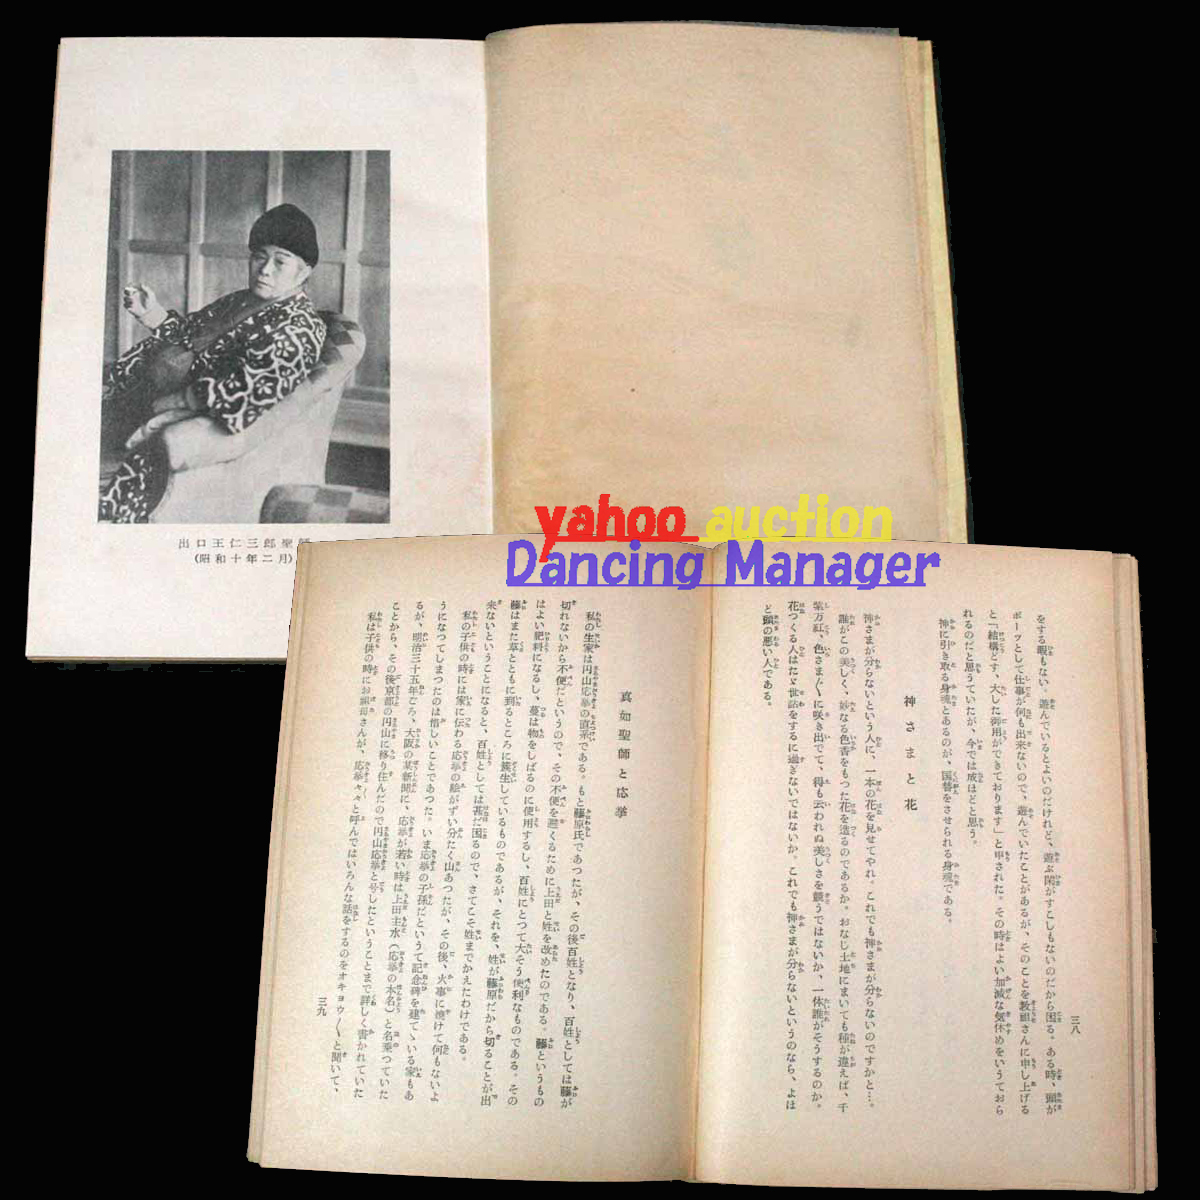 出口王仁三郎聖師
(昭和十年二月)
yahoo auction
Dancing Manager
三八
をする暇もない。遊んでいるとよいのだけれど、遊ぶ閑がすこしもないのだから困る。ある時、頭が
ボーッとして仕事が何も出来ないので、遊んでいたことがあるが、そのことを教祖さんに申し上げる
と「結構どす、大した御用ができております」と申された。その時はよい加減な気休めをいうておら
れるのだと思うていたが、今では成ほどと思う。
神に引き取る身魂とあるのが、国替をさせられる身魂である。
神さまと花
神さまが分らないという人に、一本の花を見せてやれ。これでも神さまが分らないのですかと…。
誰がこの美しく、妙なる色香をもつた花を造るのであるか。おなじ土地にまいても種が違えば、千
紫万紅、色さま〲に咲き出でて、得も云われぬ美しさを競うではないか、一体誰がそうするのか。
花つくる人はたゞ世話をするに過ぎないではないか。これでも神さまが分らないというのなら、よほ
ど頭の悪い人である。
真如聖師と応挙
私の生家は円山応挙の直系である。もと藤原氏であつたが、その後百姓となり、百姓としては藤が
切れないから不便だというので、その不便を避くるために上田と姓を改めたのである。藤というもの
はよい肥料になるし、蔓は物をしばるのに使用するし、百姓にとつて大そう便利なものである。その
藤はまた草とともに到るところに簇生しているものであるが、それを、姓が藤原だから切ることが出
来ないということになると、百姓としては甚だ困るので、さてこそ姓までかえたわけである。
私の子供の時には家に伝わる応挙の絵がずい分たく山あつたが、その後、火事に焼けて何もないよ
うになつてしまつたのは惜しいことであつた。いま応挙の子孫だといつて記念碑を建てゝいる家もあ
るが、明治三十五年ごろ、大阪の某新聞に、応挙が若い時は上田主水(応挙の本名)と名乗つていた
ことから、その後京都の円山に移り住んだので円山応挙と号したということまで詳しく書かれていた
私は子供の時にお祖母さんが、応挙々々と呼んではいろんな話をするのをオキョウ〳〵と聞いて、
三九